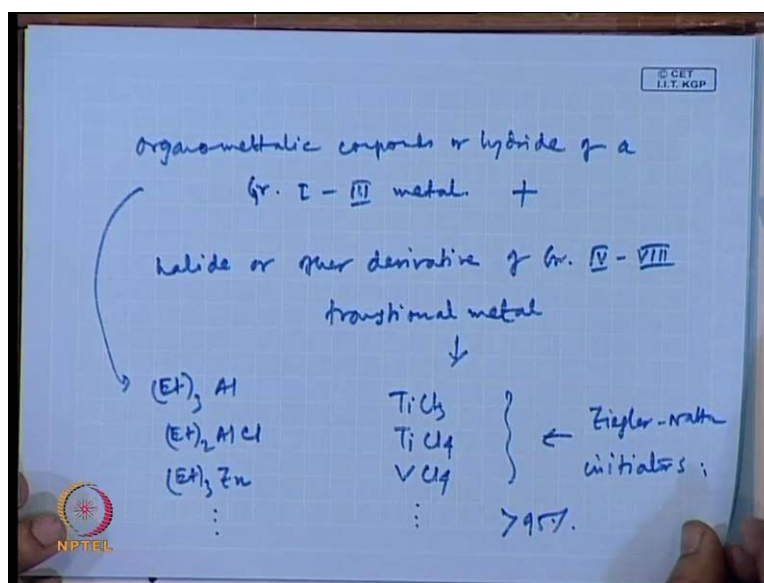 © CET
I.I.T. KGP
Organo-mettalic componds or hydride of a
Gr. I - III metal. +
halide or other derivative of Gr. IV - VIII
transtional metal
↓
(Et)3 Al TiCl3
(Et)2 AlCl TiCl4 ← Ziegler-Natta
(Et)3 Zn VCl4 initiators ;
⋮ ⋮ >95%.
NPTEL